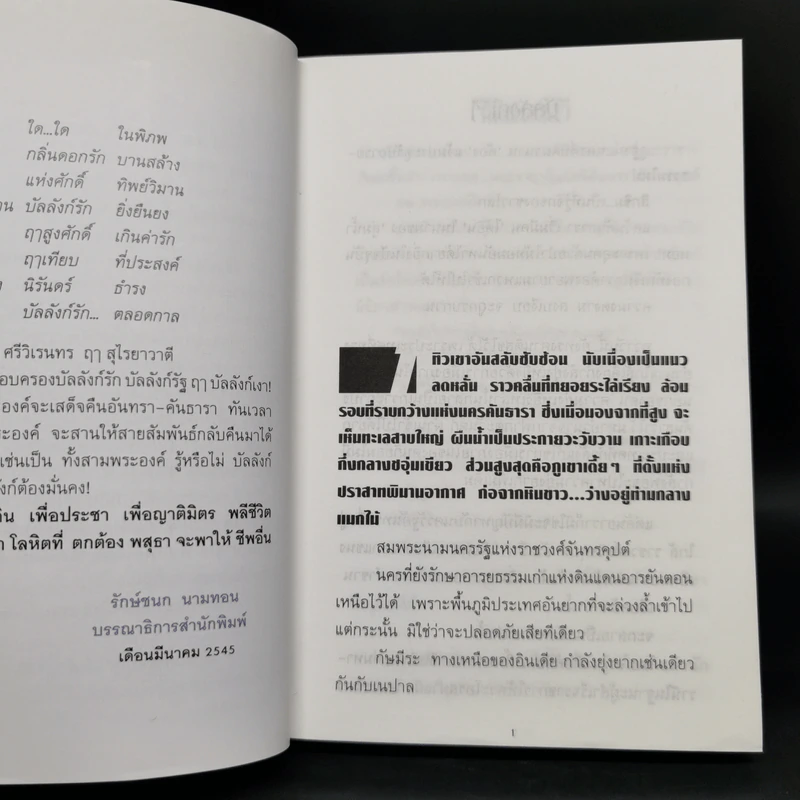 ใด...ใด ในพิภพ
กลิ่นดอกรัก บานสล้าง
แห่งศักดิ์ ทิพย์วิมาน
บัลลังก์รัก ยิ่งยืนยง
ฤๅสูงศักดิ์ เกินค่ารัก
ฤๅเทียบ ที่ประสงค์
นิรันดร์ ธำรง
บัลลังก์รัก... ตลอดกาล
ศรีวิเรนทร ฤๅ สุไรยาวาตี
อบครองบัลลังก์รัก บัลลังก์รัฐ ฤๅ บัลลังก์เงา!
องค์จะเสด็จคืนอันทรา-คันธารา ทันเวลา
ะองค์ จะสานให้สายสัมพันธ์กลับคืนมาได้
เช่นเป็น ทั้งสามพระองค์ รู้หรือไม่ บัลลังก์
งก์ต้องมั่นคง!
เพื่อประชา เพื่อญาติมิตร พลีชีวิต
โลหิตที่ ตกต้อง พสุธา จะพาให้ ชีพอื่น
รักษ์ชนก นามทอน
บรรณาธิการสำนักพิมพ์
เดือนมีนาคม 2545
1 ทิวเขาอันสลับซับซ้อน นับเนื่องเป็นแนว
ลดหลั่น ราวคลื่นที่ทยอยระไล่เรียง ล้อม
รอบที่ราบกว้างแห่งนครคันธารา ซึ่งเมื่อมองจากที่สูง จะ
เห็นทะเลสาบใหญ่ ผืนน้ำเป็นประกายวะวับวาม เกาะเกือบ
กึ่งกลางชอุ่มเขียว ส่วนสูงสุดคือภูเขาเตี้ยๆ ที่ตั้งแห่ง
ปราสาทพิมานอากาศ ก่อจากหินขาว...ว้างอยู่ท่ามกลาง
แมกไม้
สมพระนามนครรัฐแห่งราชวงศ์จันทรคุปต์
นครที่ยังรักษาอารยธรรมเก่าแห่งดินแดนอารยันตอน
เหนือไว้ได้ เพราะพื้นภูมิประเทศอันยากที่จะล่วงล้ำเข้าไป
แต่กระนั้น มิใช่ว่าจะปลอดภัยเสียทีเดียว
กัษมีระ ทางเหนือของอินเดีย กำลังยุ่งยากเช่นเดียว
กันกับเนปาล
1